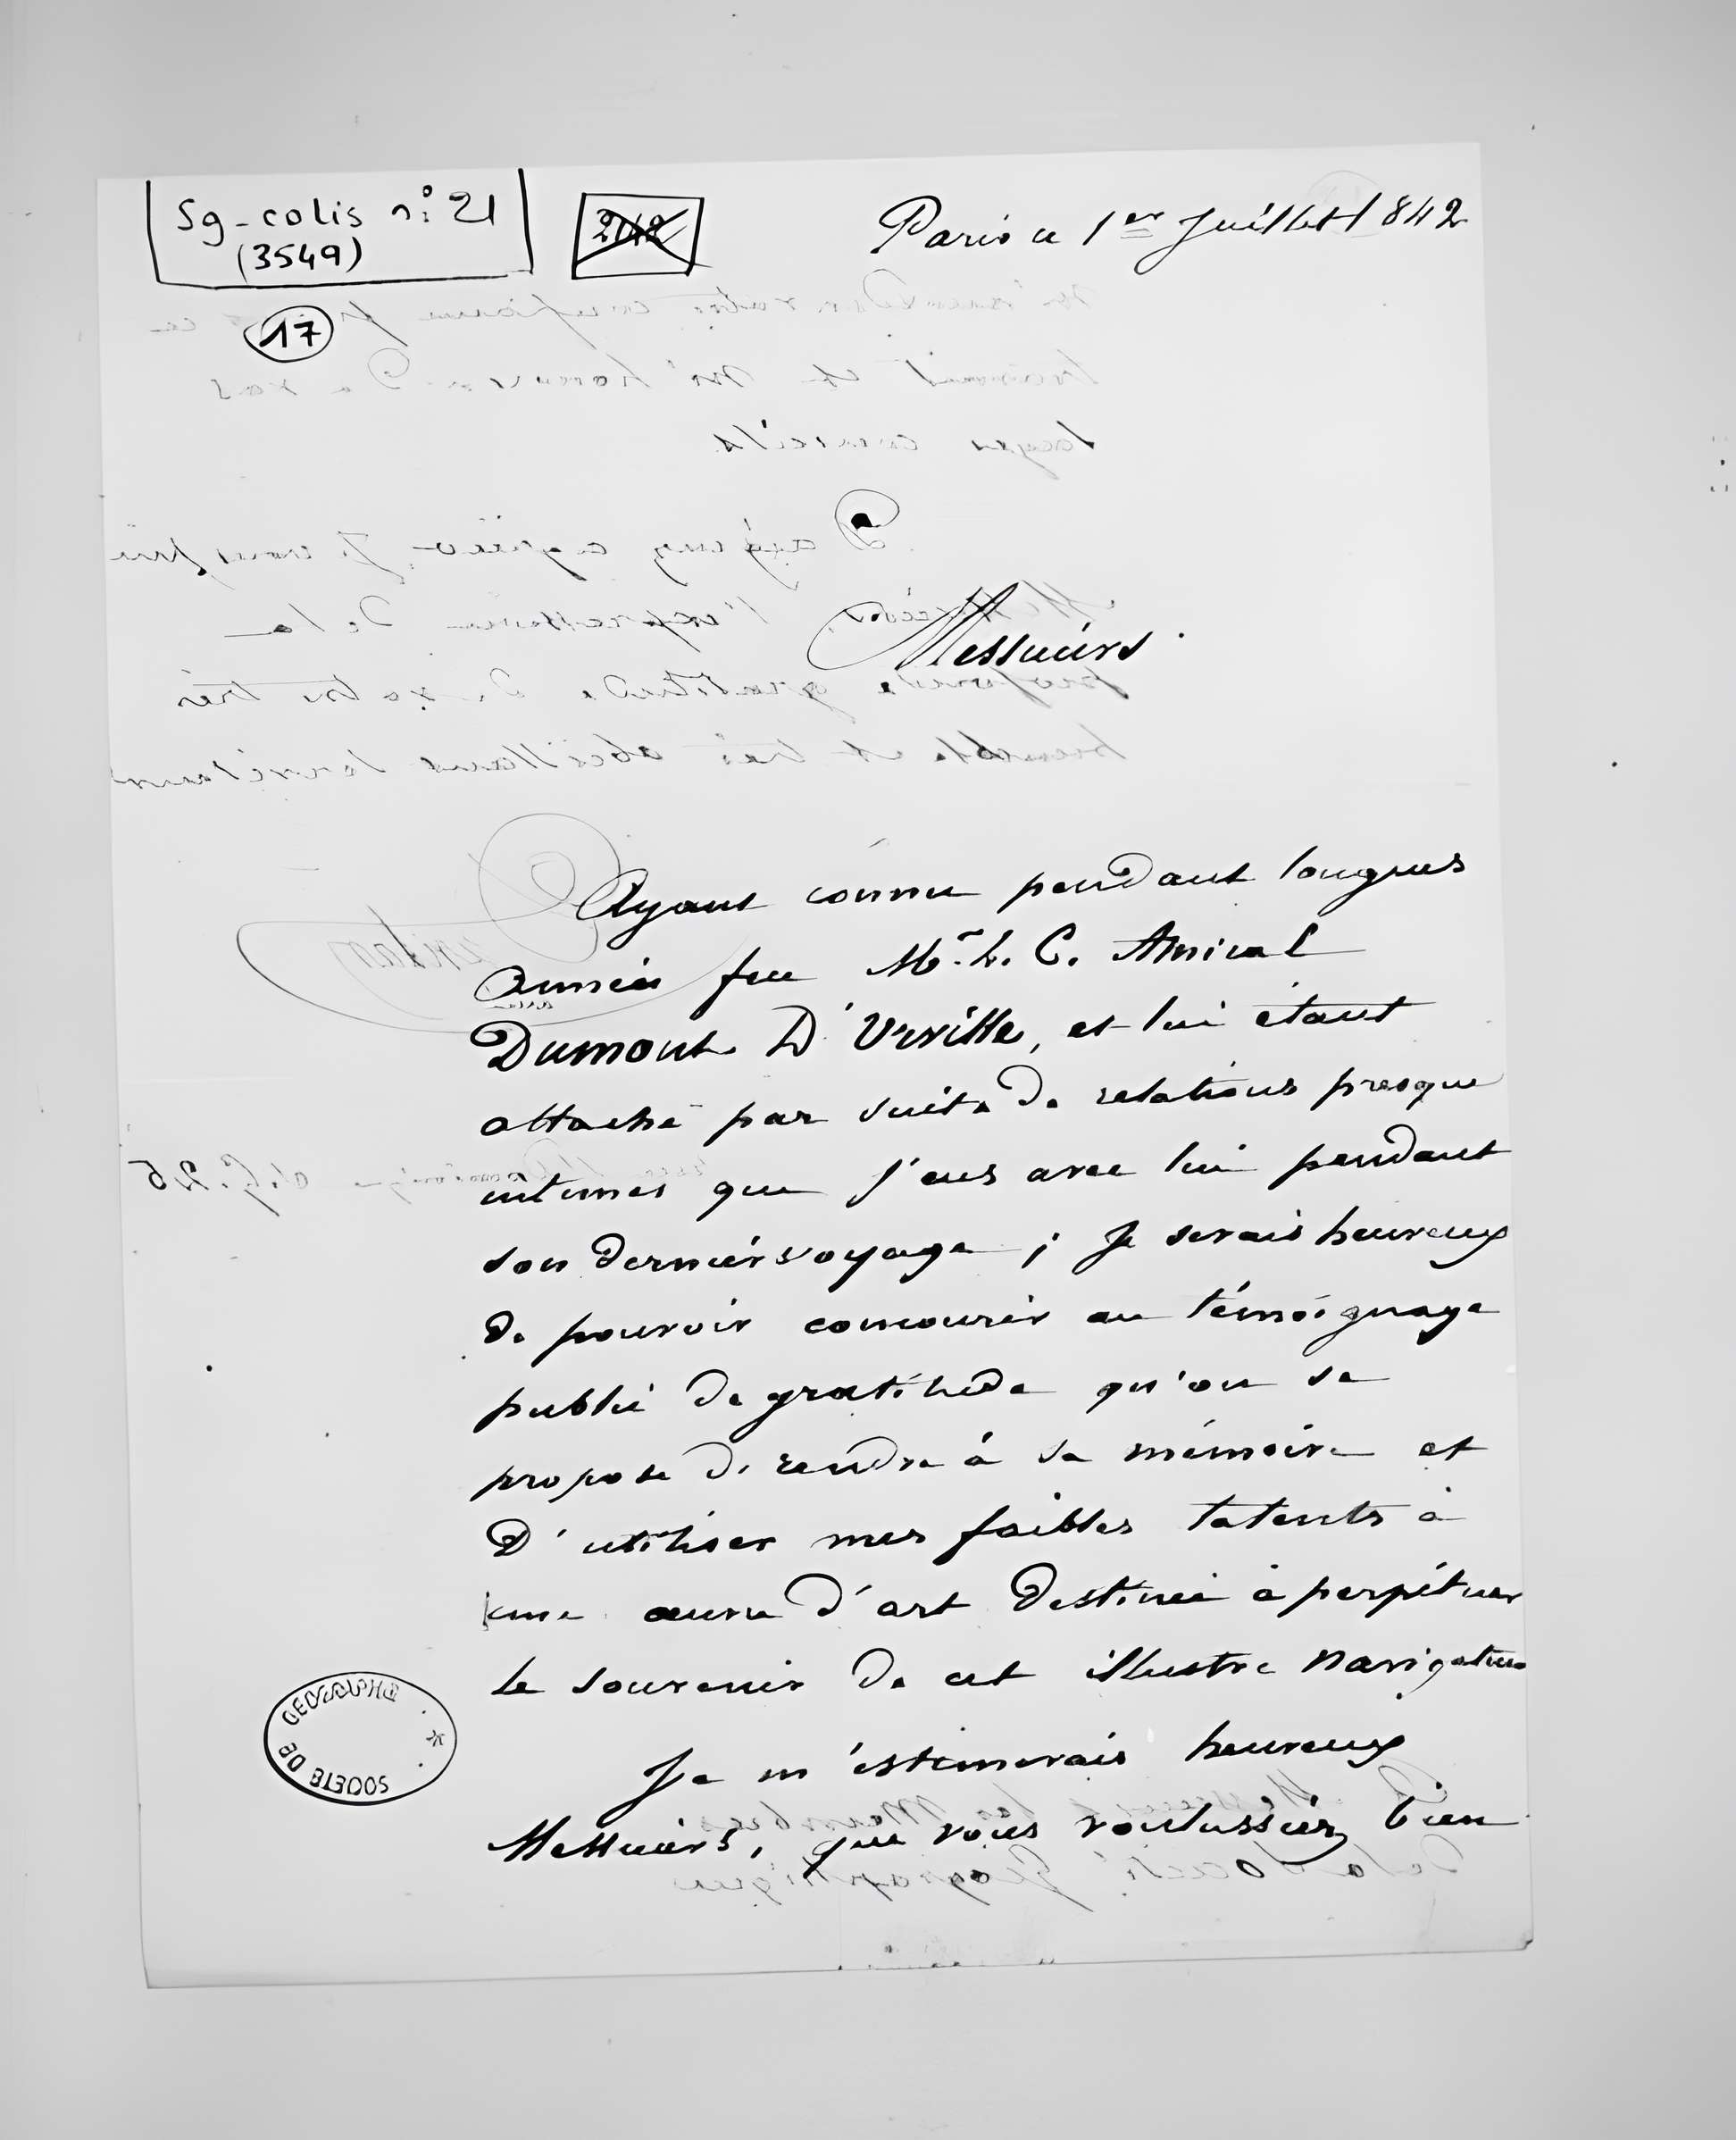 Sg-colis n° 21
(3549)
2142
17
Paris ce 1er Juillet 1842
Messieurs
Ayant connu pendant longues
années feu Mr. le C. Amiral
Dumont D'Urville, et lui étant
attaché par suite de relations presque
intimes que j'eus avec lui pendant
son dernier voyage ; Je serais heureux
de pouvoir concourir au témoignage
public de gratitude qu'on se
propose de rendre à sa mémoire et
D'utiliser mes faibles talents à
une œuvre d'art Destinée à perpétuer
le souvenir de cet illustre navigateur
Je m'estimerais heureux
Messieurs, que vous voulussiez bien
SOCIETE DE GEOGRAPHIE